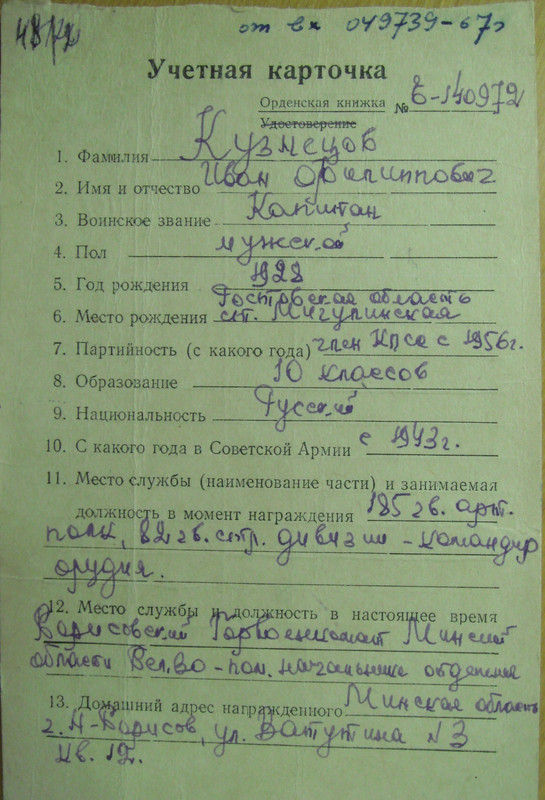 от вх 049739-67г
Учетная карточка
Орденская книжка № Е-140972
Удостоверение
1. Фамилия Кузнецов
2. Имя и отчество Иван Филиппович
3. Воинское звание Капитан
4. Пол мужской
5. Год рождения 1928
Ростовская область
6. Место рождения ст. Мигулинская
7. Партийность (с какого года) член КПСС с 1956г.
8. Образование 10 классов
9. Национальность Русский
10. С какого года в Советской Армии с 1943г.
11. Место службы (наименование части) и занимаемая
должность в момент награждения 185 гв. арт.
полк, 82 гв. стр. дивизии - командир
орудия.
12. Место службы и должность в настоящее время
Борисовский Горвоенкомат Минской
области - пом. начальника отделения
13. Домашний адрес награжденного Минская область
г. Н-Борисов, ул. Ватутина N 3
кв. 12.